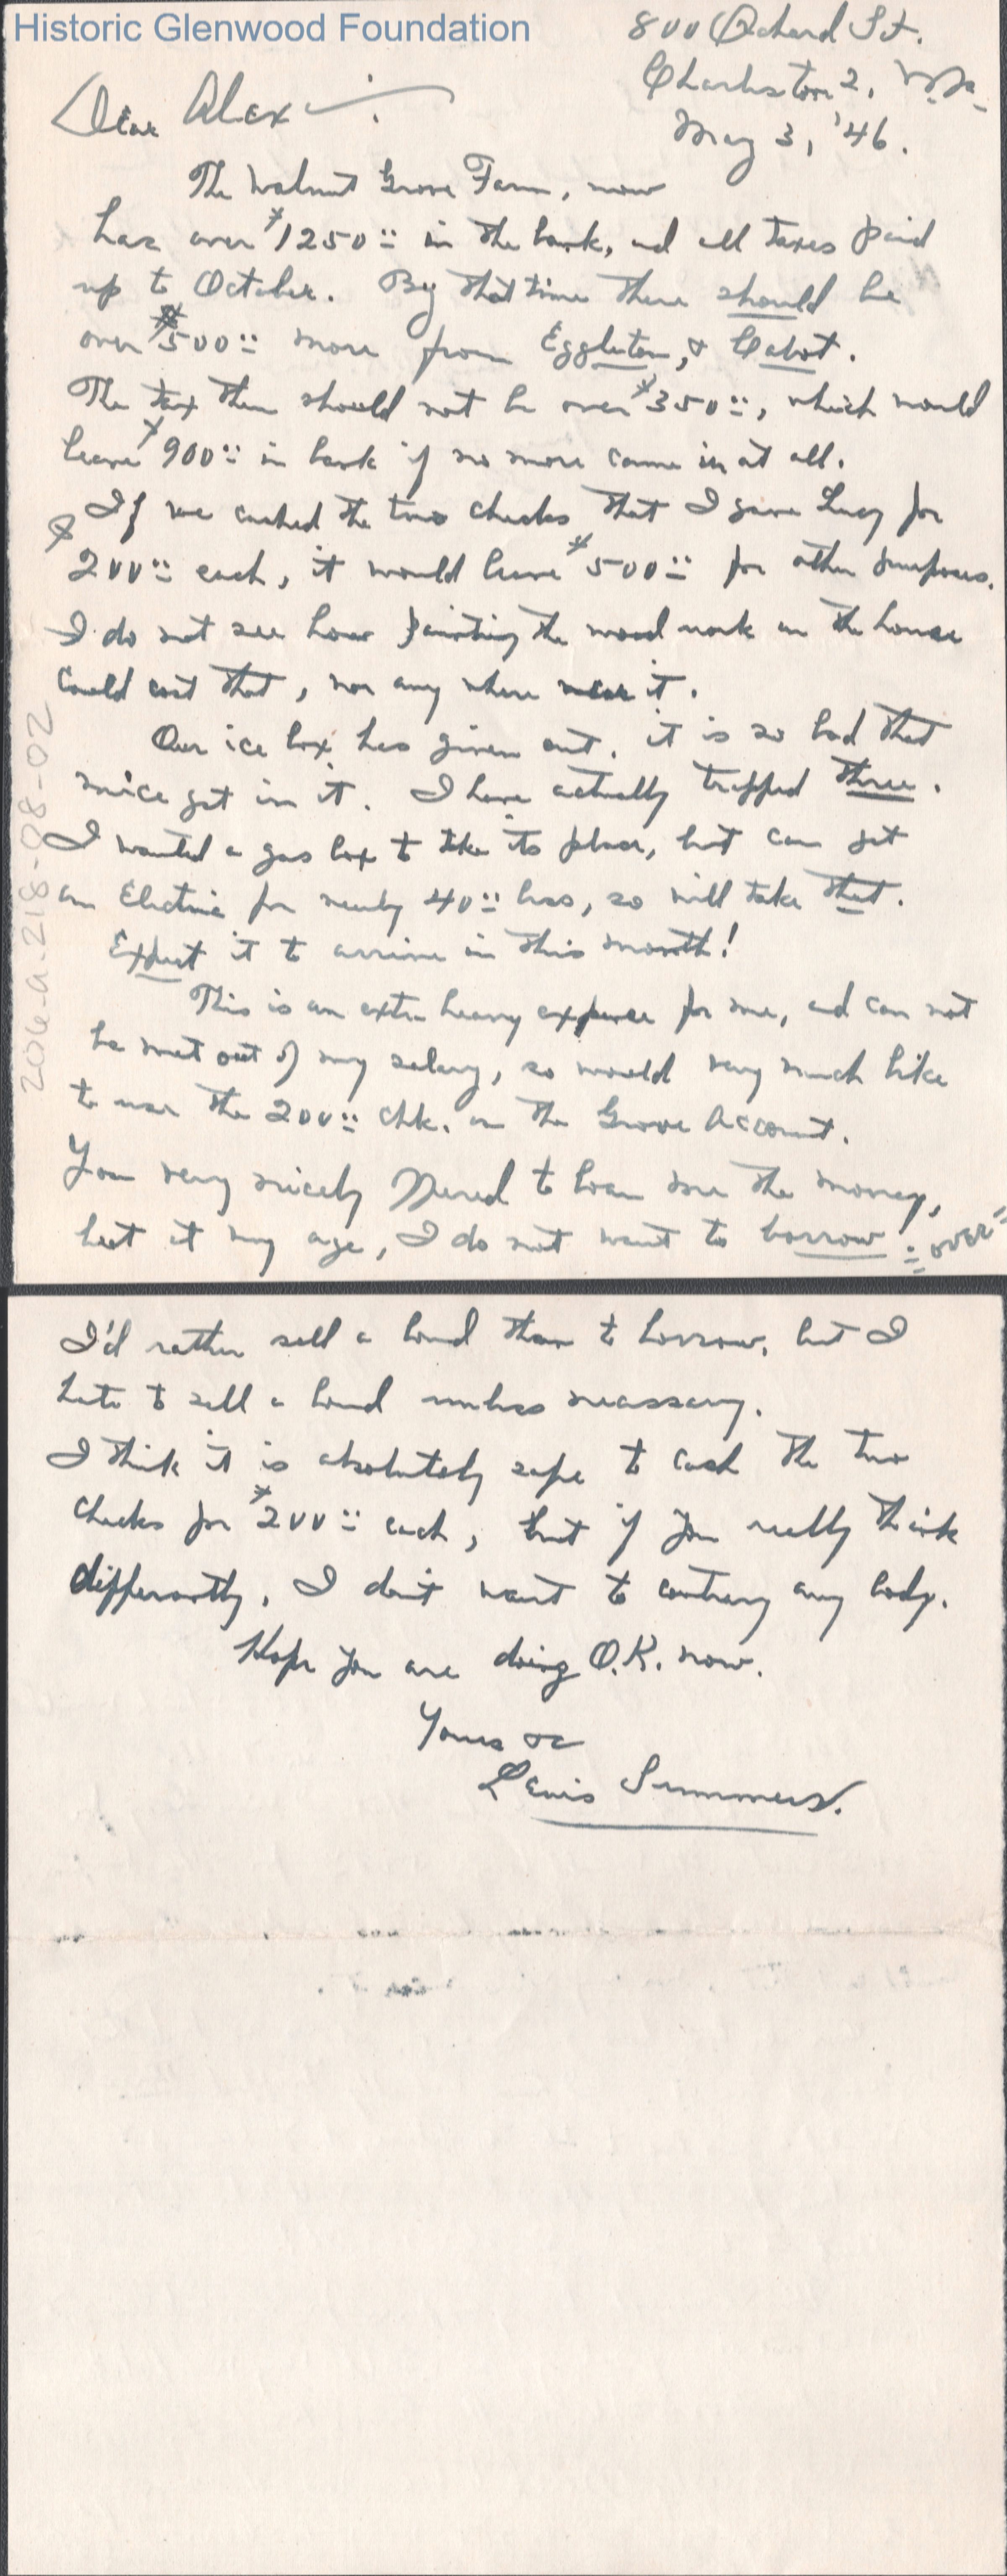 Historic Glenwood Foundation
800 Orchard St.
Charleston 2, W.Va.
May 3, '46.
Dear Alex :
The Walnut Grove Farm, now
has over $1250.00 in the bank, and all taxes paid
up to October. By that time there should be
over $500.00 more from Eggleton, & Cabot.
The tax then should not be over $350.00, which would
leave $900.00 in bank if no more came in at all.
If we cashed the two checks that I gave Lucy for
$200.00 each, it would leave $500.00 for other purposes.
I do not see how painting the wood work on the house
could cost that, nor any where near it.
Our ice box has given out. it is so bad that
mice get in it. I have actually trapped three.
I wanted a gas box to take its place, but can get
an Electric for nearly 40.00 less, so will take that.
Expect it to arrive in this month!
This is an extra heavy expense for me, and can not
be met out of my salary, so would very much like
to use the 200.00 chk. on the Grove Account.
You very nicely offered to loan me the money,
but at my age, I do not want to borrow! = over =
206-a.218-08-02
I'd rather sell a bond than to borrow, but I
hate to sell a bond unless necessary.
I think it is absolutely safe to cash the two
checks for $200.00 each, but if you really think
differently, I don't want to contrary any body.
Hope you are doing O.K. now.
Yours &c
Lewis Summers.